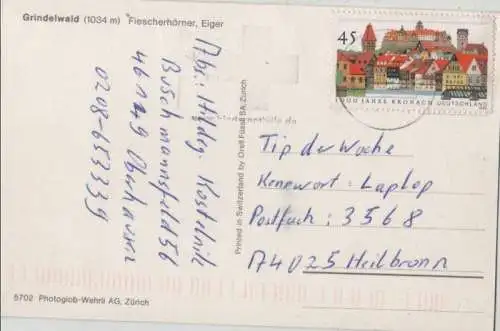 Grindelwald (1034 m) Fiescherhörner, Eiger
Abs.: Hildeg. Kostelnik
Buschmannsfeld 56
46149 Oberhausen
0208-653339
5702 Photoglob-Wehrli AG, Zürich
Printed in Switzerland by Orell Füssli SA, Zürich
45
1000 JAHRE KRONACH DEUTSCHLAND
Tip der Woche
Kennwort: Laptop
Postfach: 3568
74025 Heilbronn